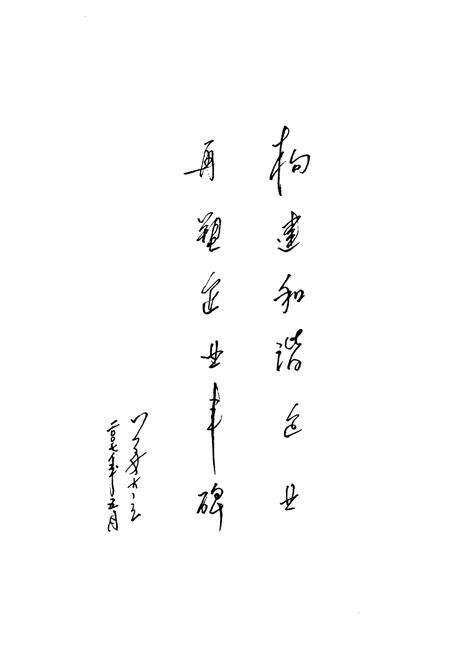 构建和谐企业
再塑企业丰碑
二〇〇七年五月